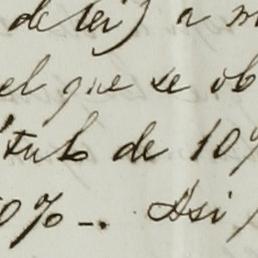 de ley) a m
el que se ob
ítulo de 10%
0%-. Asi